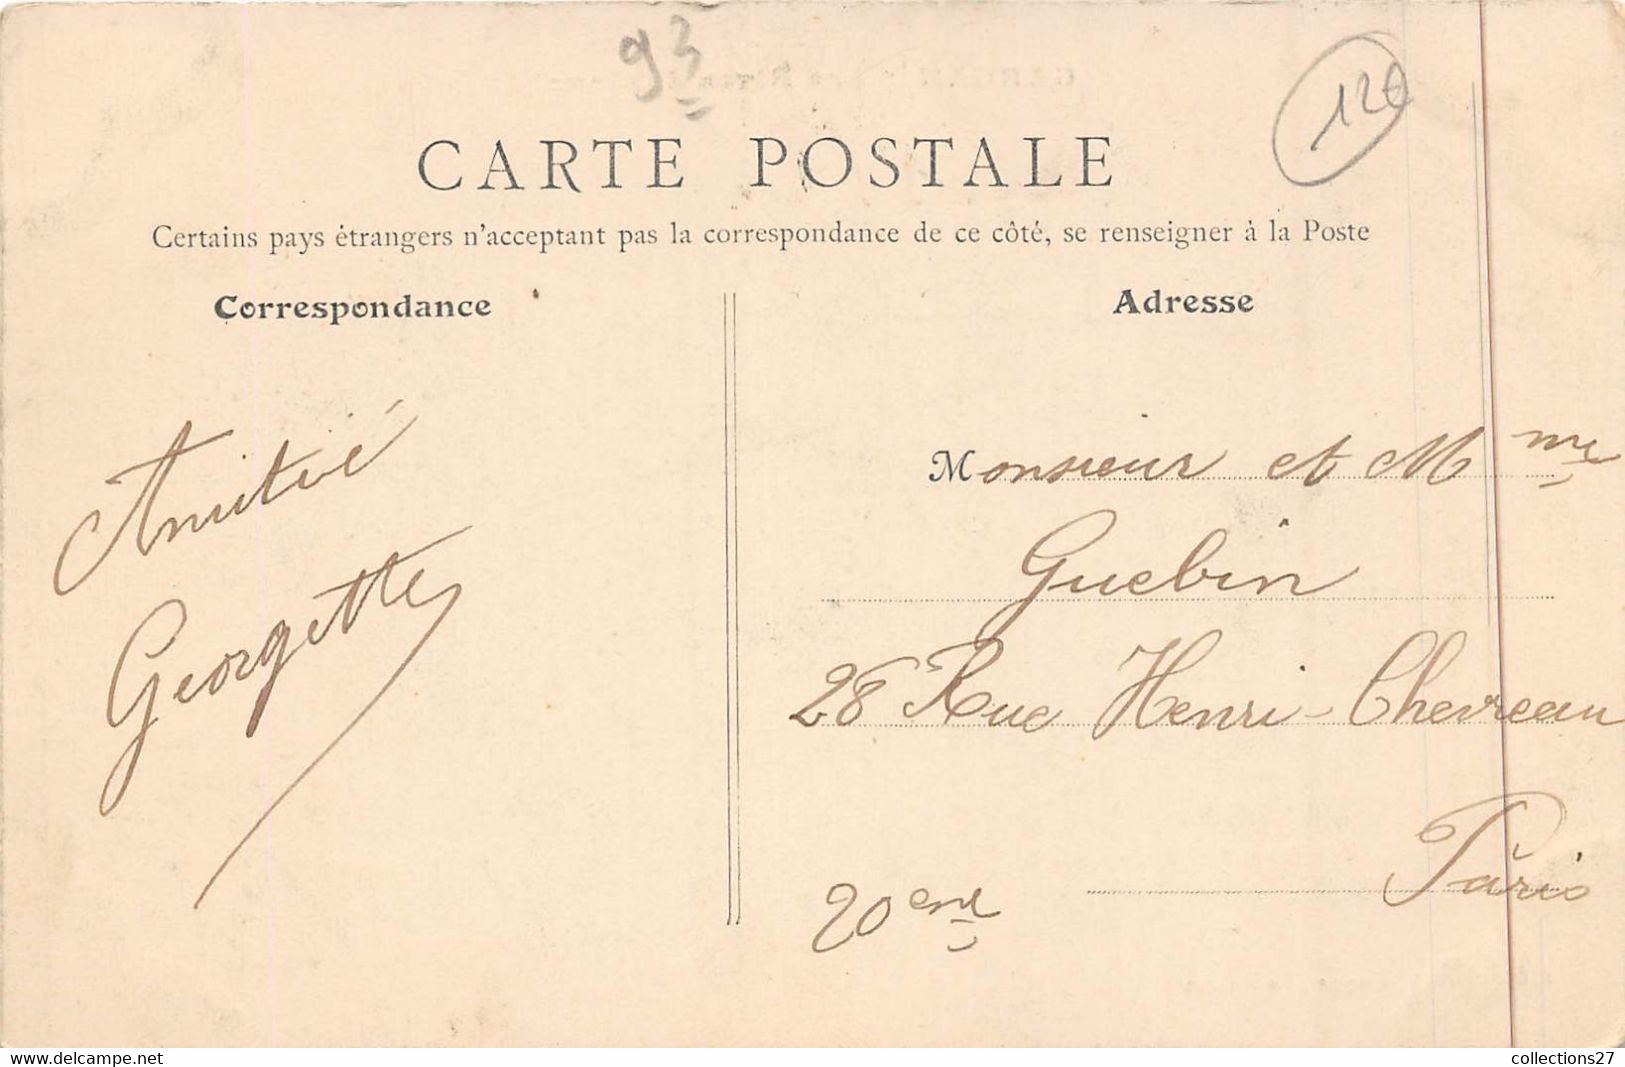 93
12€
CARTE POSTALE
Certains pays étrangers n'acceptant pas la correspondance de ce côté, se renseigner à la Poste
Correspondance
Amitié
Georgette
Adresse
Monsieur et Mme
Guebin
28 Rue Henri-Chevreau
Paris
20eme
www.delcampe.net
collections27